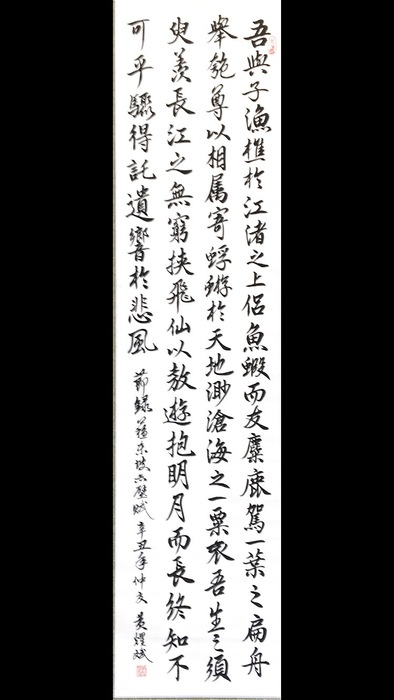 吾與子漁樵於江渚之上侶魚蝦而友麋鹿駕一葉之扁舟
舉匏尊以相属寄蜉蝣於天地渺滄海之一粟哀吾生之須
臾羨長江之無窮挾飛仙以敖遊抱明月而長終知不
可乎驟得託遺響於悲風
節録蘇東坡赤壁賦 辛丑年仲夏 黃燿斌